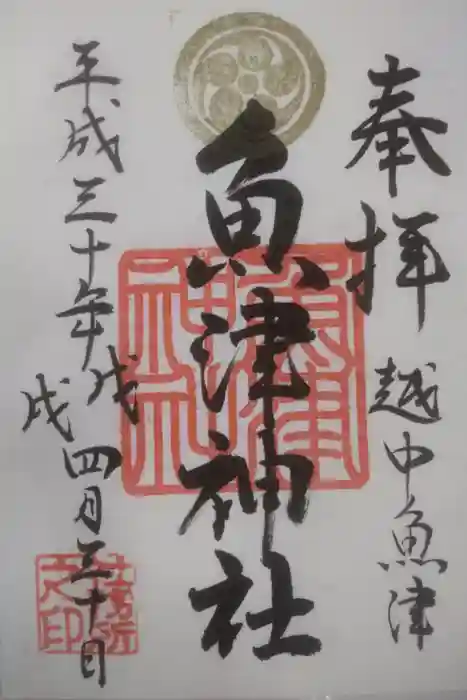 奉拝
越中魚津
魚津神社
魚津神社
平成三十年戊戌四月三十日